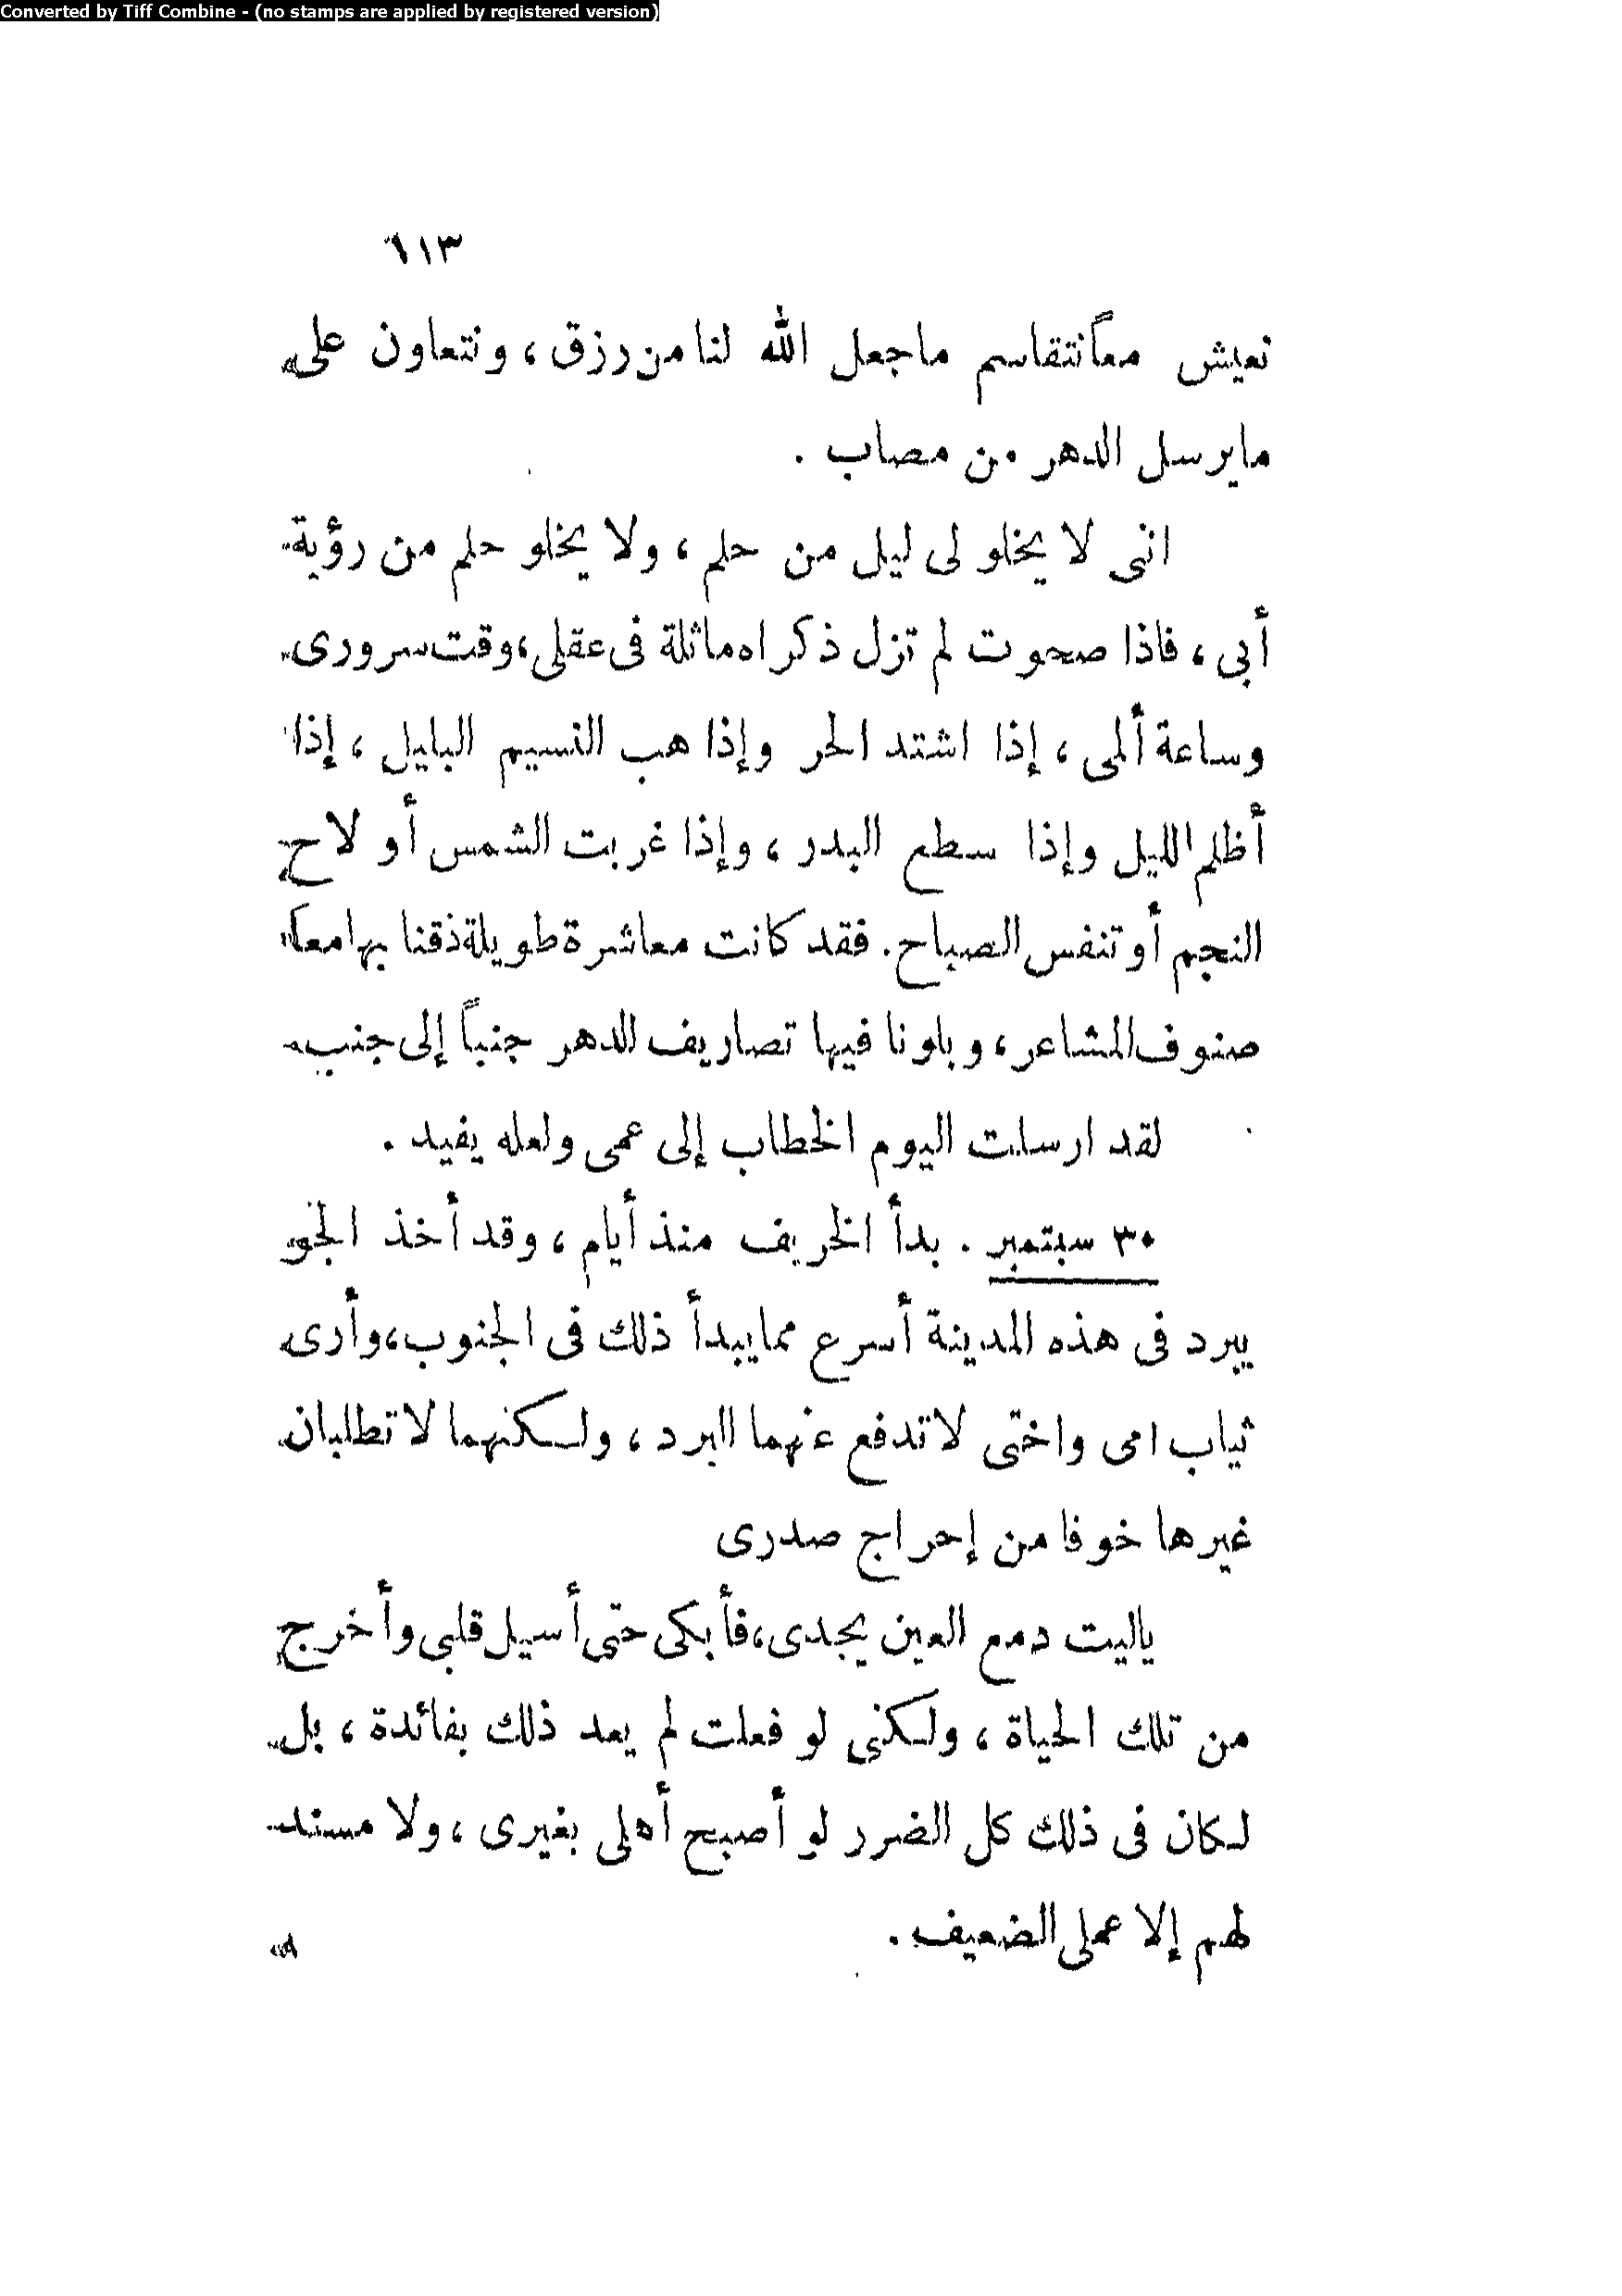 Converted by Tiff Combine - (no stamps are applied by registered version)
٦١٣
نعيش معاً نتقاسم ماجعل الله لنا من رزق ، ونتعاون على
مايرسل الدهر من مصاب .
انى لا يخلو لى ليل من حلم ، ولا يخلو حلم من رؤية
أبى ، فاذا صحوت لم تزل ذكراه ماثلة فى عقلى ، وقت سرورى
وساعة ألمى ، إذا اشتد الحر وإذا هب النسيم البليل ، إذا
أظلم الليل وإذا سطع البدر ، وإذا غربت الشمس أو لاح
النجم أو تنفس الصباح . فقد كانت معاشرة طويلة ذقنا بها معاً
صنوف المشاعر ، وبلونا فيها تصاريف الدهر جنباً إلى جنب
لقد ارسلت اليوم الخطاب إلى عمى ولعله يفيد .
٣٠ سبتمبر . بدأ الخريف منذ أيام ، وقد أخذ الجو
يبرد فى هذه المدينة أسرع مما يبدأ ذلك فى الجنوب ، وأرى
ثياب امى واختى لا تدفع عنهما البرد ، ولكنهما لا تطلبان
غيرها خوفا من إحراج صدرى
ياليت دمع العين يجدى ، فأبكى حتى أسيل قلبى وأخرج
من تلك الحياة ، ولكنى لو فعلت لم يعد ذلك بفائدة ، بل
لكان فى ذلك كل الضرر لو أصبح أهلى بغيرى ، ولا مسند
لهم إلا عملى الضعيف .